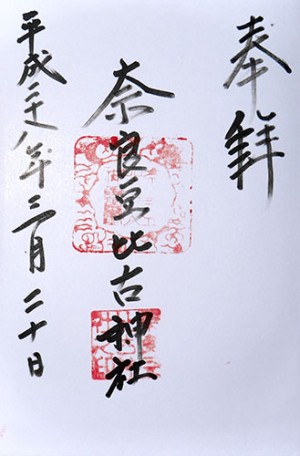 奉拝
奈良豆比古神社
平成二十八年三月二十日